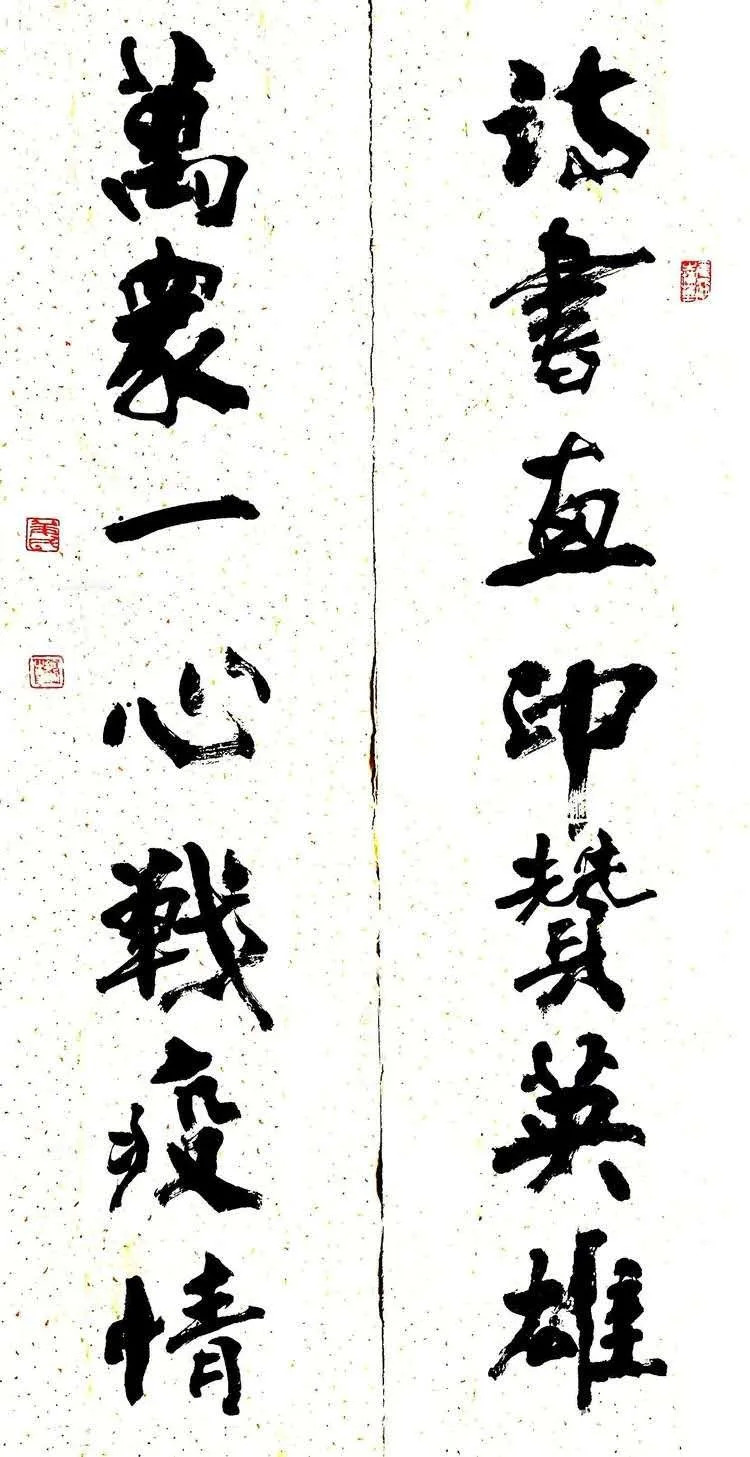 詩書画印贊英雄
萬眾一心戰疫情